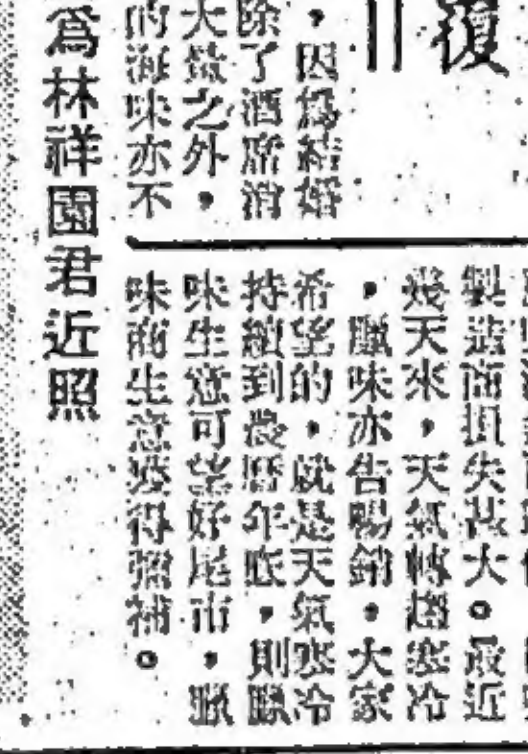 復
，因爲結婚
除了酒席消
大 之外，
的海味亦不
製造商損失甚大。最近
幾天來，天氣轉趨寒冷
，臘味亦告暢銷，大家
希望的，就是天氣寒冷
持續到農曆年底，則臘
味生意可望好尾市，臘
味商生意獲得彌補。
爲林祥園君近照